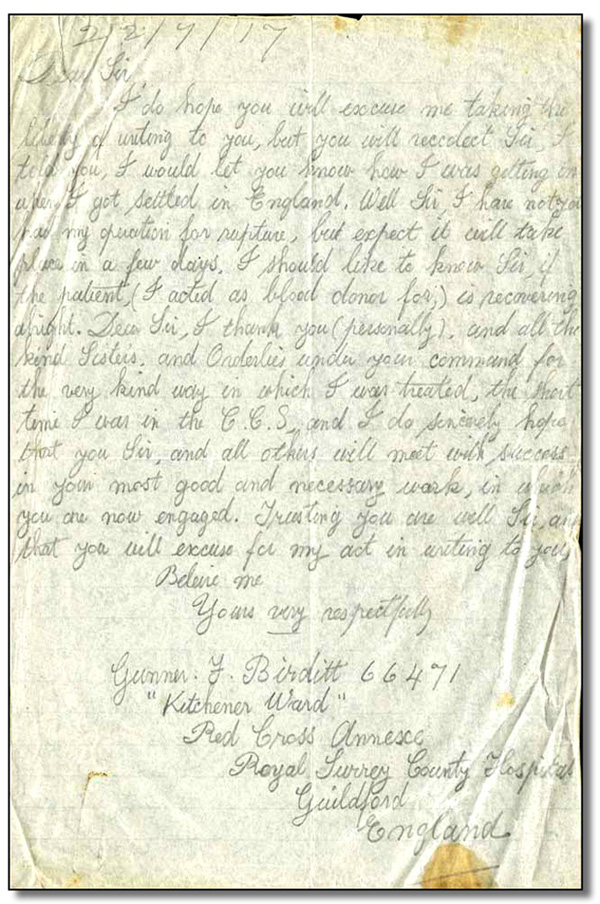 22/7/17
Dear Sir
I do hope you will excuse me taking the
liberty of writing to you, but you will recolect Sir, I
told you, I would let you know how I was getting on
when I got settled in England. Well Sir, I have not yet
had my operation for rupture, but expect it will take
place in a few days. I should like to know Sir, if
the patient, (I acted as blood donor for,) is recovering
alright. Dear Sir, I thank you (personally), and all the
kind Sisters, and Orderlies under your command for
the very kind way in which I was treated, the short
time I was in the C.C.S, and I do sincerely hope
that you Sir, and all others will meet with success
in your most good and necessary work, in which
you are now engaged. Trusting you are well Sir, and
that you will excuse for my act in writing to you,
Beleive me
Yours very respectfully
Gunner. F. Birditt 66471
"Kitchener Ward"
Red Cross Annexe
Royal Surrey County Hospital
Guildford
England